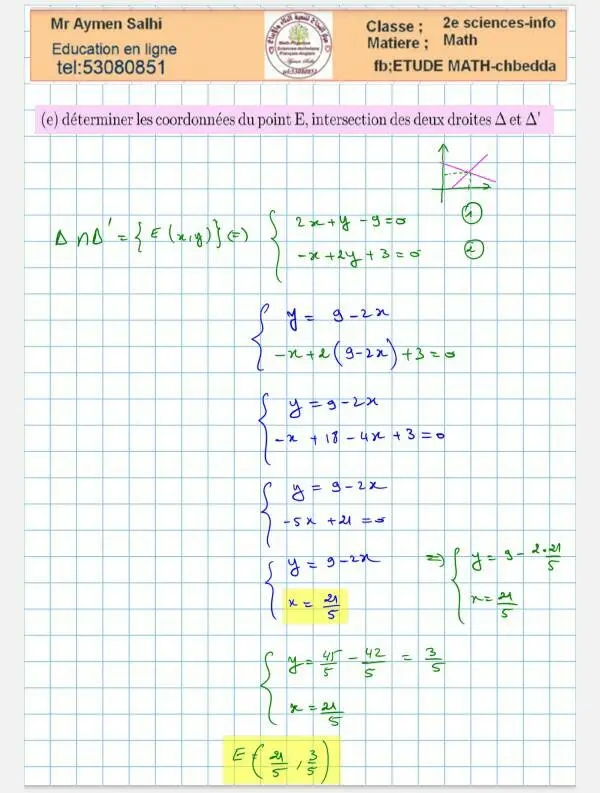 Mr Aymen Salhi
Education en ligne
tel:53080851
Classe ; 2e sciences-info
Matiere ; Math
fb;ETUDE MATH-chbedda
(e) déterminer les coordonnées du point E, intersection des deux droites Δ et Δ'
Δ ∩ Δ' = { E (x,y) } (=) { 2x + y - 9 = 0 ①
-x + 2y + 3 = 0 ②
{ y = 9 - 2x
-x + 2 (9-2x) + 3 = 0
{ y = 9 - 2x
-x + 18 - 4x + 3 = 0
{ y = 9 - 2x
-5x + 21 = 0
{ y = 9 - 2x => { y = 9 - 2·21/5
x = 21/5 x = 21/5
{ y = 45/5 - 42/5 = 3/5
x = 21/5
E = ( 21/5 , 3/5 )